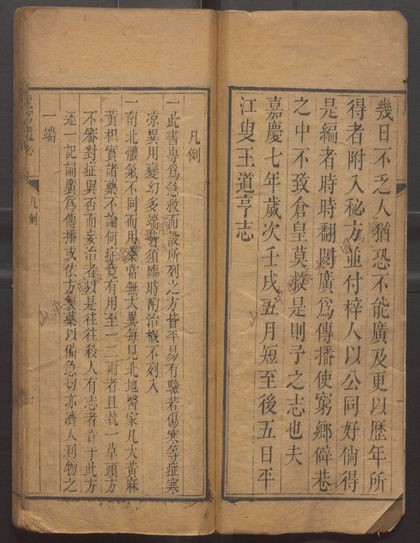 幾日不乏人猶恐不能廣及更以歷年所
得者附入秘方並付梓人以公同好倘得
是編者時時翻閱廣為傳播使窮鄉僻巷
之中不致倉皇莫救是則予之志也夫
嘉慶七年歲次壬戌五月短至後五日平
江叟王道亨志
凡例
一此書專為急救而設所列之方皆平易有驗若傷寒等症寒
涼異用變幻多端須臨時酌治概不列入
一南北體氣不同而用藥當無大異每見北地醫家凡大黃麻
黃枳實諸藥不論何症竟有用至一二兩者且執一草頭方
不審對症與否而妄治者以是往往殺人有志者肯于此方
逐一記誦廣為傳播或依方製藥以備急切亦濟人利物之
一端
凡例